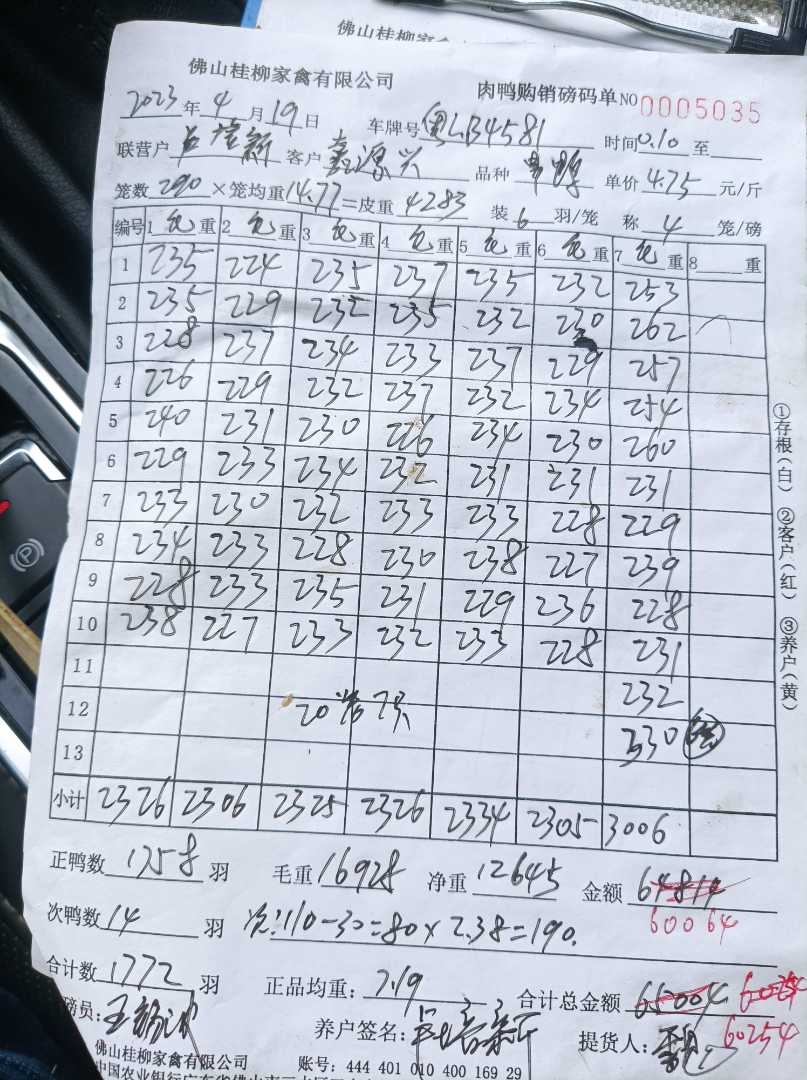 佛山桂柳家禽
佛山桂柳家禽有限公司 肉鸭购销磅码单 NO 0005035
2023年4月19日 车牌号 粤LB4581 时间 0.10 至
联营户 客户 鑫源兴 品种 单价 4.75 元/斤
笼数 290 ×笼均重 14.77 =皮重 4283 装 6 羽/笼 称 4 笼/磅
编号 1 毛 重 2 毛 重 3 毛 重 4 毛 重 5 毛 重 6 毛 重 7 毛 重 8 重
1 235 224 235 237 235 232 253
2 235 229 232 235 232 230 262
3 228 237 234 233 237 229 257
4 226 229 232 237 232 234 254
5 240 231 230 226 234 230 260
6 229 233 234 232 231 231 231
7 233 230 232 233 233 228 229
8 234 233 228 230 238 227 239
9 228 233 235 231 229 236 228
10 238 227 233 232 233 228 231
11 232
12 20笼7只 330
13
小计 2326 2306 2325 2326 2334 2305 3006
正鸭数 1758 羽 毛重 16928 净重 12645 金额 64814
60064
次鸭数 14 羽 次:110-30=80×2.38=190.
合计数 1772 羽 正品均重: 7.19 合计总金额 65004 60254
磅员: 养户签名: 提货人: 60254
佛山桂柳家禽有限公司 账号: 444 401 010 400 169 29
①存根(白) ②客户(红) ③养户(黄)